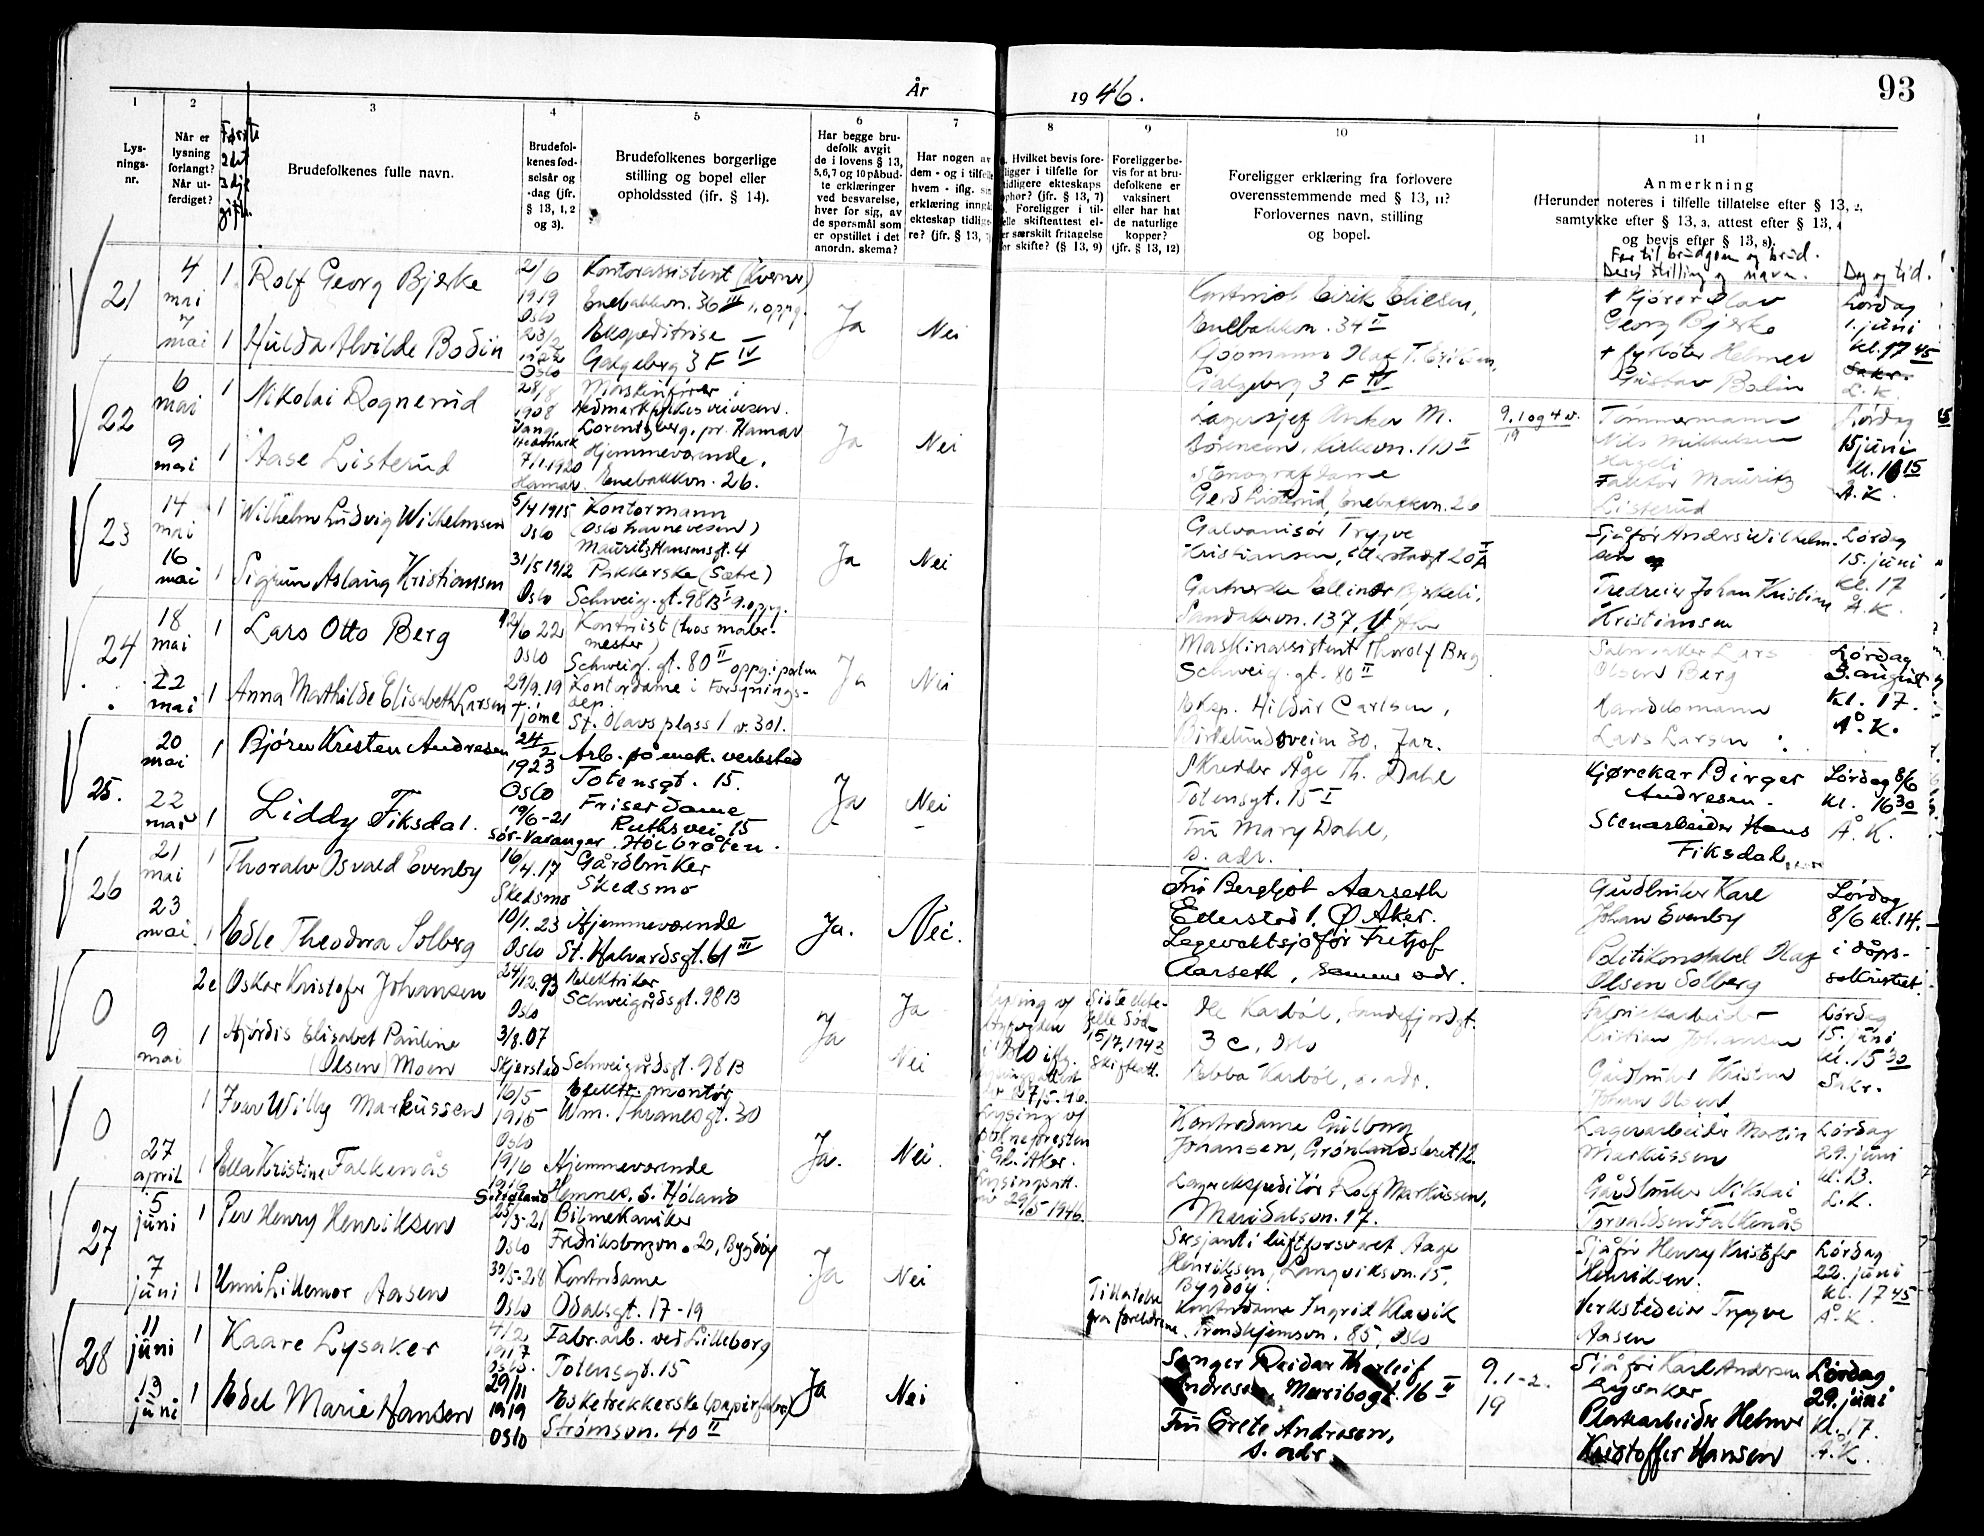 År 1946.
93
1 2 3 4 5 6 7 8 9 10 11
Lys-
nings-
nr.
Når er
lysning
forlangt?
Når ut-
ferdiget?
Første
2det
3dje
gifte.
Brudefolkenes fulle navn.
Brudefol-
kenes fød-
selsår og
-dag (jfr.
§ 13, 1, 2
og 3).
Brudefolkenes borgerlige
stilling og bopel eller
opholdssted (jfr. § 14).
Har begge bru-
defolk avgit
de i lovens § 13,
5,6,7 og 10 påbud-
te erklæringer
ved besvarelse,
hver for sig, av
de spørsmål som
er opstillet i det
anordn. skema?
Har nogen av
dem - og i tilfelle
hvem - iflg.
erklæring inngå
ekteskap tidlig-
re? (jfr. § 13,
Hvilket bevis fore-
ligger i tilfelle for
tidligere ekteskaps
ophør? (jfr. § 13, 7)
Foreligger i til-
felle skifteattest el-
er særskilt fritagelse
er skifte? (§ 13, 9)
Foreligger be-
vis for at bru-
defolkene er
vaksinert
eller har hat
de naturlige
kopper?
(jfr. § 13, 12)
Foreligger erklæring fra forlovere
overensstemmende med § 13, 11?
Forlovernes navn, stilling
og bopel.
Anmerkning
(Herunder noteres i tilfelle tillatelse efter § 13, 2,
samtykke efter § 13, 3, attest efter § 13, 4
og bevis efter § 13, 8).
Far til brudgom og brud.
Deres stilling og navn.
Dag og tid.
21
4
mai
7
mai
1
Rolf Georg Bjerke
2/6
1919
Oslo
Kontorassistent (Kværner)
Enebakkvn. 36 III 1. oppg.
1
Hulda Alvilde Bodin
23/2
1922
Oslo
Ekspeditrise
Galgeberg 3 F IV
Ja
Nei
Kontorist Eirik Eliesen,
Enebakkvn. 34 II
Galgeberg 3 F IV
+ Kjører Olav
Georg Bjerke
+ fyrbøter Helmer
Gustav Bodin
Lørdag
1. juni
kl. 17 45
Sakr.
L.K.
22
6
mai
9
mai
1
Nikolai Rognerud
28/8
1908
Vang,
Hedmark
Maskinfører i
Hedmark fylkes veivesen.
Lorentzberg, pr. Hamar
1
Aase Listerud
7/1.1920
Hamar
Hjemmeværende.
Enebakkvn. 26.
Ja
Nei
Lagersjef Anker M.
Sørensen, Kirkevn. 110 II
Stenografdame
Gerd Listerud, Enebakkvn. 26
9. 1 og 4 v.
19
Tømmermann
Nils Mikkelsen
Hageli
Faktor Mauritz
Listerud
Lørdag
15 juni
kl. 16 15
Å.K.
23
14
mai
16
mai
1
Wilhelm Ludvig Wilhelmsen
5/4 1915
Oslo
Kontormann
(Oslo havnevesen)
Mauritz Hansensgt. 4
1
Sigrun Aslaug Kristiansen
31/5 1912
Oslo
Pakkerske (Sætre)
Schweig. gt. 98 B I 2. oppg.
Ja
Nei
Galvanisør Trygve
Kristiansen, Etterstadgt 20 A
Gartnerske Ellinor Bjerkeli,
Sandakervn. 137,
Sjåfør Anders Wilhelm-
sen
Tredreier Johan Kristian
Kristiansen
Lørdag
15. juni
kl. 17
Å.K.
24
18
mai
22
mai
1
Lars Otto Berg
12/6 22
Oslo
Kontorist (hos maler-
mester)
Schweig. gt. 80 II oppg. i porten
1
Anna Mathilde Elisabeth Larsen
29/9.19
Tjøme
Kontordame i Forsynings-
dep.
St. Olavs plass 1 v. 301.
Ja
Nei
Maskinassistent Thorolf Berg
Schweig. gt. 80 II
Eksp. Hildur Carlsen,
Birkelundsveien 30. Jar.
Salmaker Lars
Olsen Berg
Handelsmann
Lars Larsen
Lørdag
3. august
kl. 17.
Å.K.
25.
20
mai
22
mai
1
Bjørn Kristen Andresen
24/2
1923
Oslo
Arb. på mek. verksted
Totensgt. 15.
1
Liddy Fiksdal.
19/6-21
Sør-Varanger
Friserdame
Ruths vei 15
Høibråten.
Ja
Nei
Skredder Åge Th. Dahl
Totensgt. 15 I
Fru Mary Dahl,
s. adr.
Kjørekar Birger
Andresen.
Stenarbeider Hans
Fiksdal
Lørdag 8/6
kl. 16 30
Å.K.
26
21
mai
23
mai
1
Thoralv Osvald Evenby
16/4.17
Skedsmo
Gårdbruker
Skedsmo
1
Edle Theodora Solberg
10/1.23
Oslo
Hjemmeværende
St. Halvardsgt. 61 III
Ja.
Nei.
Fru Bergljot Aarseth
Etterstad 1. Ø. Aker.
Legevaktsjåfør Fritjof
Aarseth, samme adr.
Gårdbruker Karl
Johan Evenby
Politikonstabel Olaf
Olsen Solberg
Lørdag
8/6 kl. 14.
i dåps-
sakristiet.
0
9
mai
2e
Oskar Kristofer Johansen
24/12.93
Oslo
Elektriker
Schweigårdsgt. 98 B
1
Hjørdis Elisabet Pauline
(Olsen) Moen
3/8.07
Skjerstad
Schweigårdsgt. 98 B
Ja
Ja
Nei
Siste ekte-
felle død
15/7.1943
Skifteatt.
Ole Karbøl, Sandefjordgt.
3 c, Oslo
Ebba Karbøl, s. adr.
Fabrikkarbeider
Kristian Johansen
Gårdbruker Kristen
Johan Olsen
Lørdag
15. juni
kl. 15 30
Sakr.
0
27
april
1
Ivar Willy Markussen
16/5
1915
Oslo
Elektr. montør
Wm. Thranes gt. 30
1
Ella Kristine Falkenås
19/6
1919
S. Høland
Hjemmeværende
Hemnes, S. Høland
Ja.
Nei.
Lysing av
soknepresten
i Gl. Aker.
Lysingsatt.
av 29/5 1946.
Kontordame Gudborg
Johansen, Grønlandsleret 12.
Lagerekspeditør Rolf Markussen,
Maridalsvn. 17.
Lagerarbeider Martin
Markussen
Gårdbruker Nikolai
Torvaldsen Falkenås
Lørdag
29. juni
kl. 13.
L.K.
27
5
juni
7
juni
1
Per Henry Henriksen
25/3-21
Oslo
Bilmekaniker
Fredriksborgvn. 20, Bygdøy
1
Unni Lillemor Aasen
30/5-28
Oslo
Kontordame
Odalsgt. 17-19
Ja
Nei
Tillatelse
fra foreldrene
Sersjant i luftforsvaret Aage
Henriksen, Langviksvn. 15,
Bygdøy.
Kontordame Ingrid Klavik
Trondhjemsvn. 85, Oslo
Sjåfør Henry Kristofer
Henriksen.
Verkstedeier Trygve
Aasen
Lørdag
22. juni
kl. 17 45
Å.K.
28
11
juni
13
juni
1
Kaare Lysaker
4/2
1917
Oslo.
Fabr. arb. ved Lilleborg
Totensgt. 15
1
Edel Marie Hansen
29/11
1919
Oslo
Esketrekkerske (papirfabr.)
Strømsvn. 40 II
Ja
Nei
Sanger Reidar Thorleif
Andresen, Maribogt. 16 II
Fru Grete Andresen,
s. adr.
9. 1-2.
19
Sjåfør Karl Andresen
Lysaker
Platearbeider Helmer
Kristoffer Hansen
Lørdag
29. juni
Kl. 17.
Å.K.